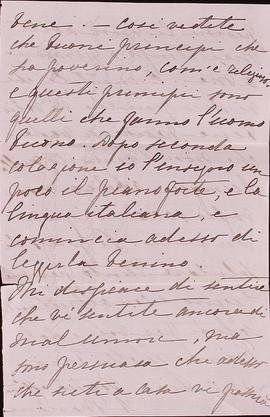 bene – così vedete
che buoni principi che
ha poverino, com'è religioso
e questi principi sono
quelli che fanno l'uomo
buono. Dopo seconda
colazione io l'insegno un
poco il piano forte, e la
lingua italiana, e
comincia adesso di
legerla benino.
Mi dispiace di sentire
che vi sentite ancora di
mal umore, ma
sono persuasa che adesso
che siete a casa vi